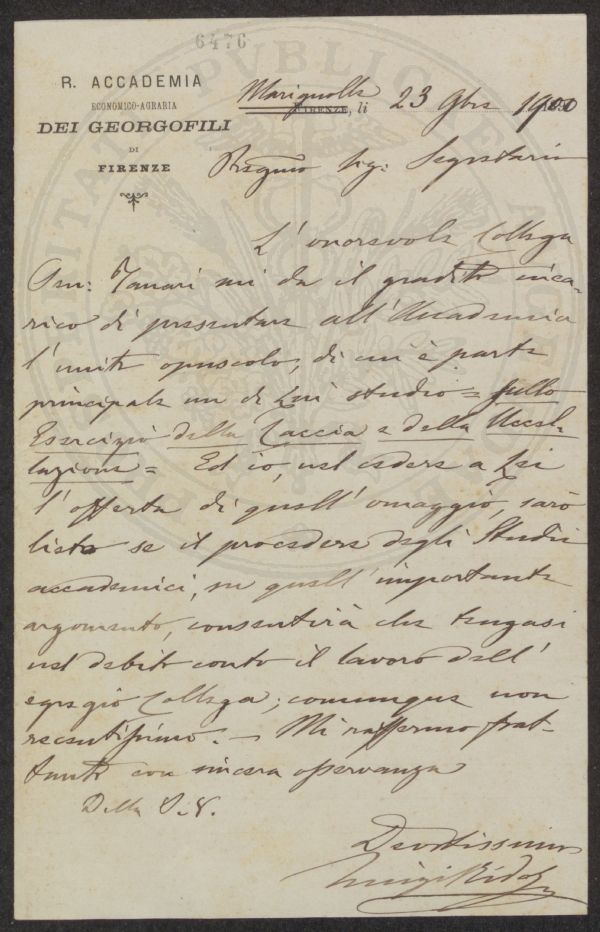 6476
R. ACCADEMIA
ECONOMICO-AGRARIA
DEI GEORGOFILI
DI
FIRENZE
Marignolle
FIRENZE, li 23 9bre 1900
Pregmo Sig: Segretario
L' onorevole Collega
Sen: Tanari mi da il gradito inca-
rico di presentare all'Accademia
l'unito opuscolo, di cui è parte
principale un di Lui studio = sullo
Esercizio della Caccia e della Uccel-
lazione = Ed io, nel cedere a Lei
l'offerta di quell' omaggio, sarò
lieto se il procedere degli Studi
accademici, su quell' importante
argomento, consentirà che tengasi
nel debito conto il lavoro dell'
egregio Collega; comunque non
recentissimo. — Mi raffermo frat-
tanto con sincera osservanza
Della S.V.
Devotissimo
Luigi Ridolfi